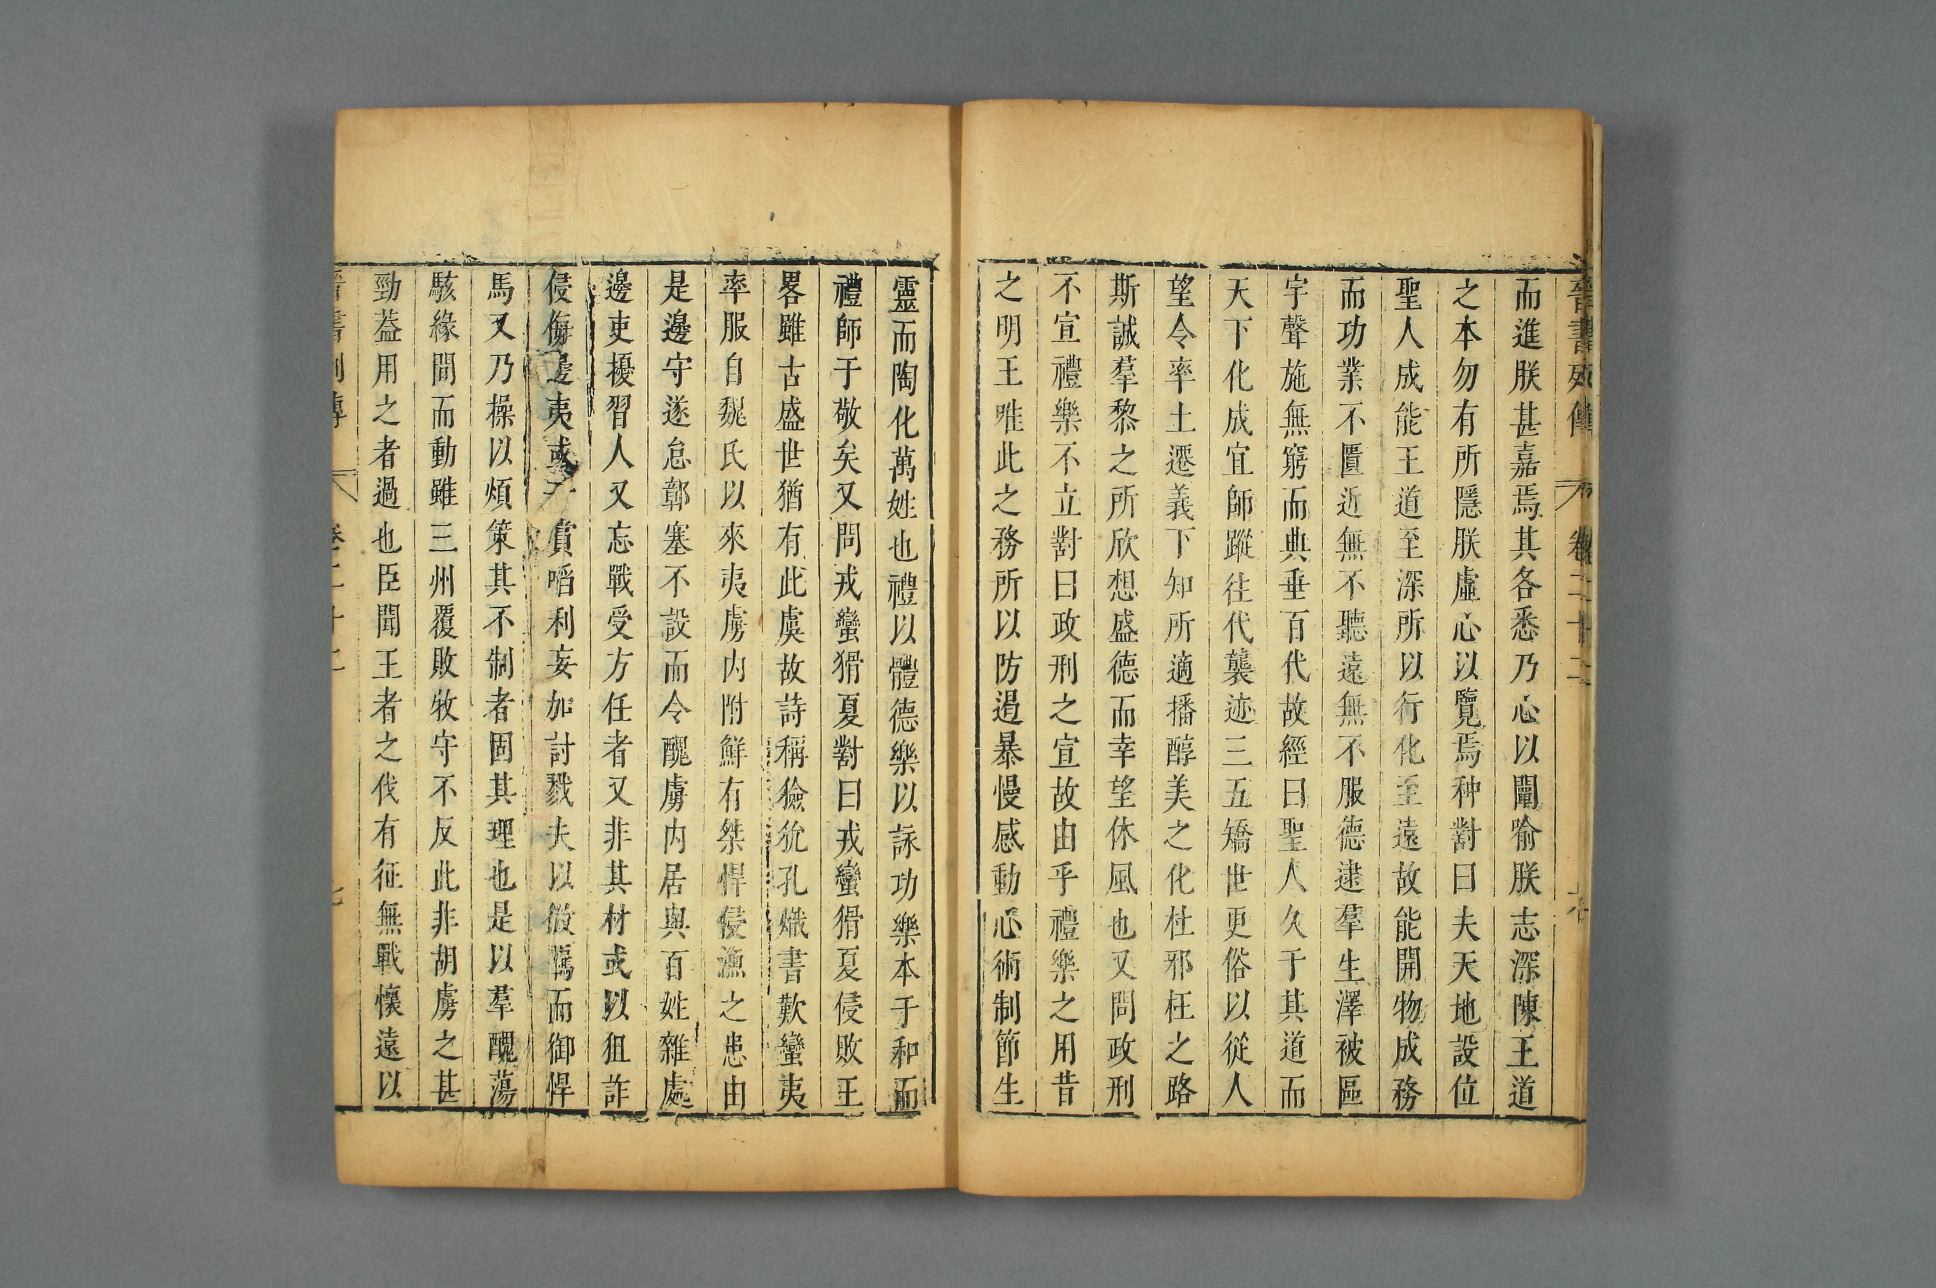 晉書列傳 卷二十二
而進朕甚嘉焉其各悉乃心以闡喻朕志深陳王道
之本勿有所隱朕虛心以覽焉种對曰夫天地設位
聖人成能王道至深所以行化至遠故能開物成務
而功業不匱近無不聽遠無不服德逮羣生澤被區
宇聲施無窮而典垂百代故經曰聖人久于其道而
天下化成宜師蹤往代襲迹三五矯世更俗以從人
望令率土遷義下知所適播醇美之化杜邪枉之路
斯誠羣黎之所欣想盛德而幸望休風也又問政刑
不宣禮樂不立對曰政刑之宣故由乎禮樂之用昔
之明王唯此之務所以防遏暴慢感動心術制節生
靈而陶化萬姓也禮以體德樂以詠功樂本于和而
禮師于敬矣又問戎蠻猾夏對曰戎蠻猾夏侵敗王
畧雖古盛世猶有此虞故詩稱獫狁孔熾書歎蠻夷
率服自魏氏以來夷虜内附鮮有桀悍侵漁之患由
是邊守遂怠鄣塞不設而令醜虜内居與百姓雜處
邊吏擾習人又忘戰受方任者又非其材或以狙詐
侵侮邊夷或干賞啗利妄加討戮夫以微羈而御悍
馬又乃操以煩策其不制者固其理也是以羣醜蕩
駭緣間而動雖三州覆敗牧守不反此非胡虜之甚
勁葢用之者過也臣聞王者之伐有征無戰懷遠以
晉書列傳 卷二十二 七